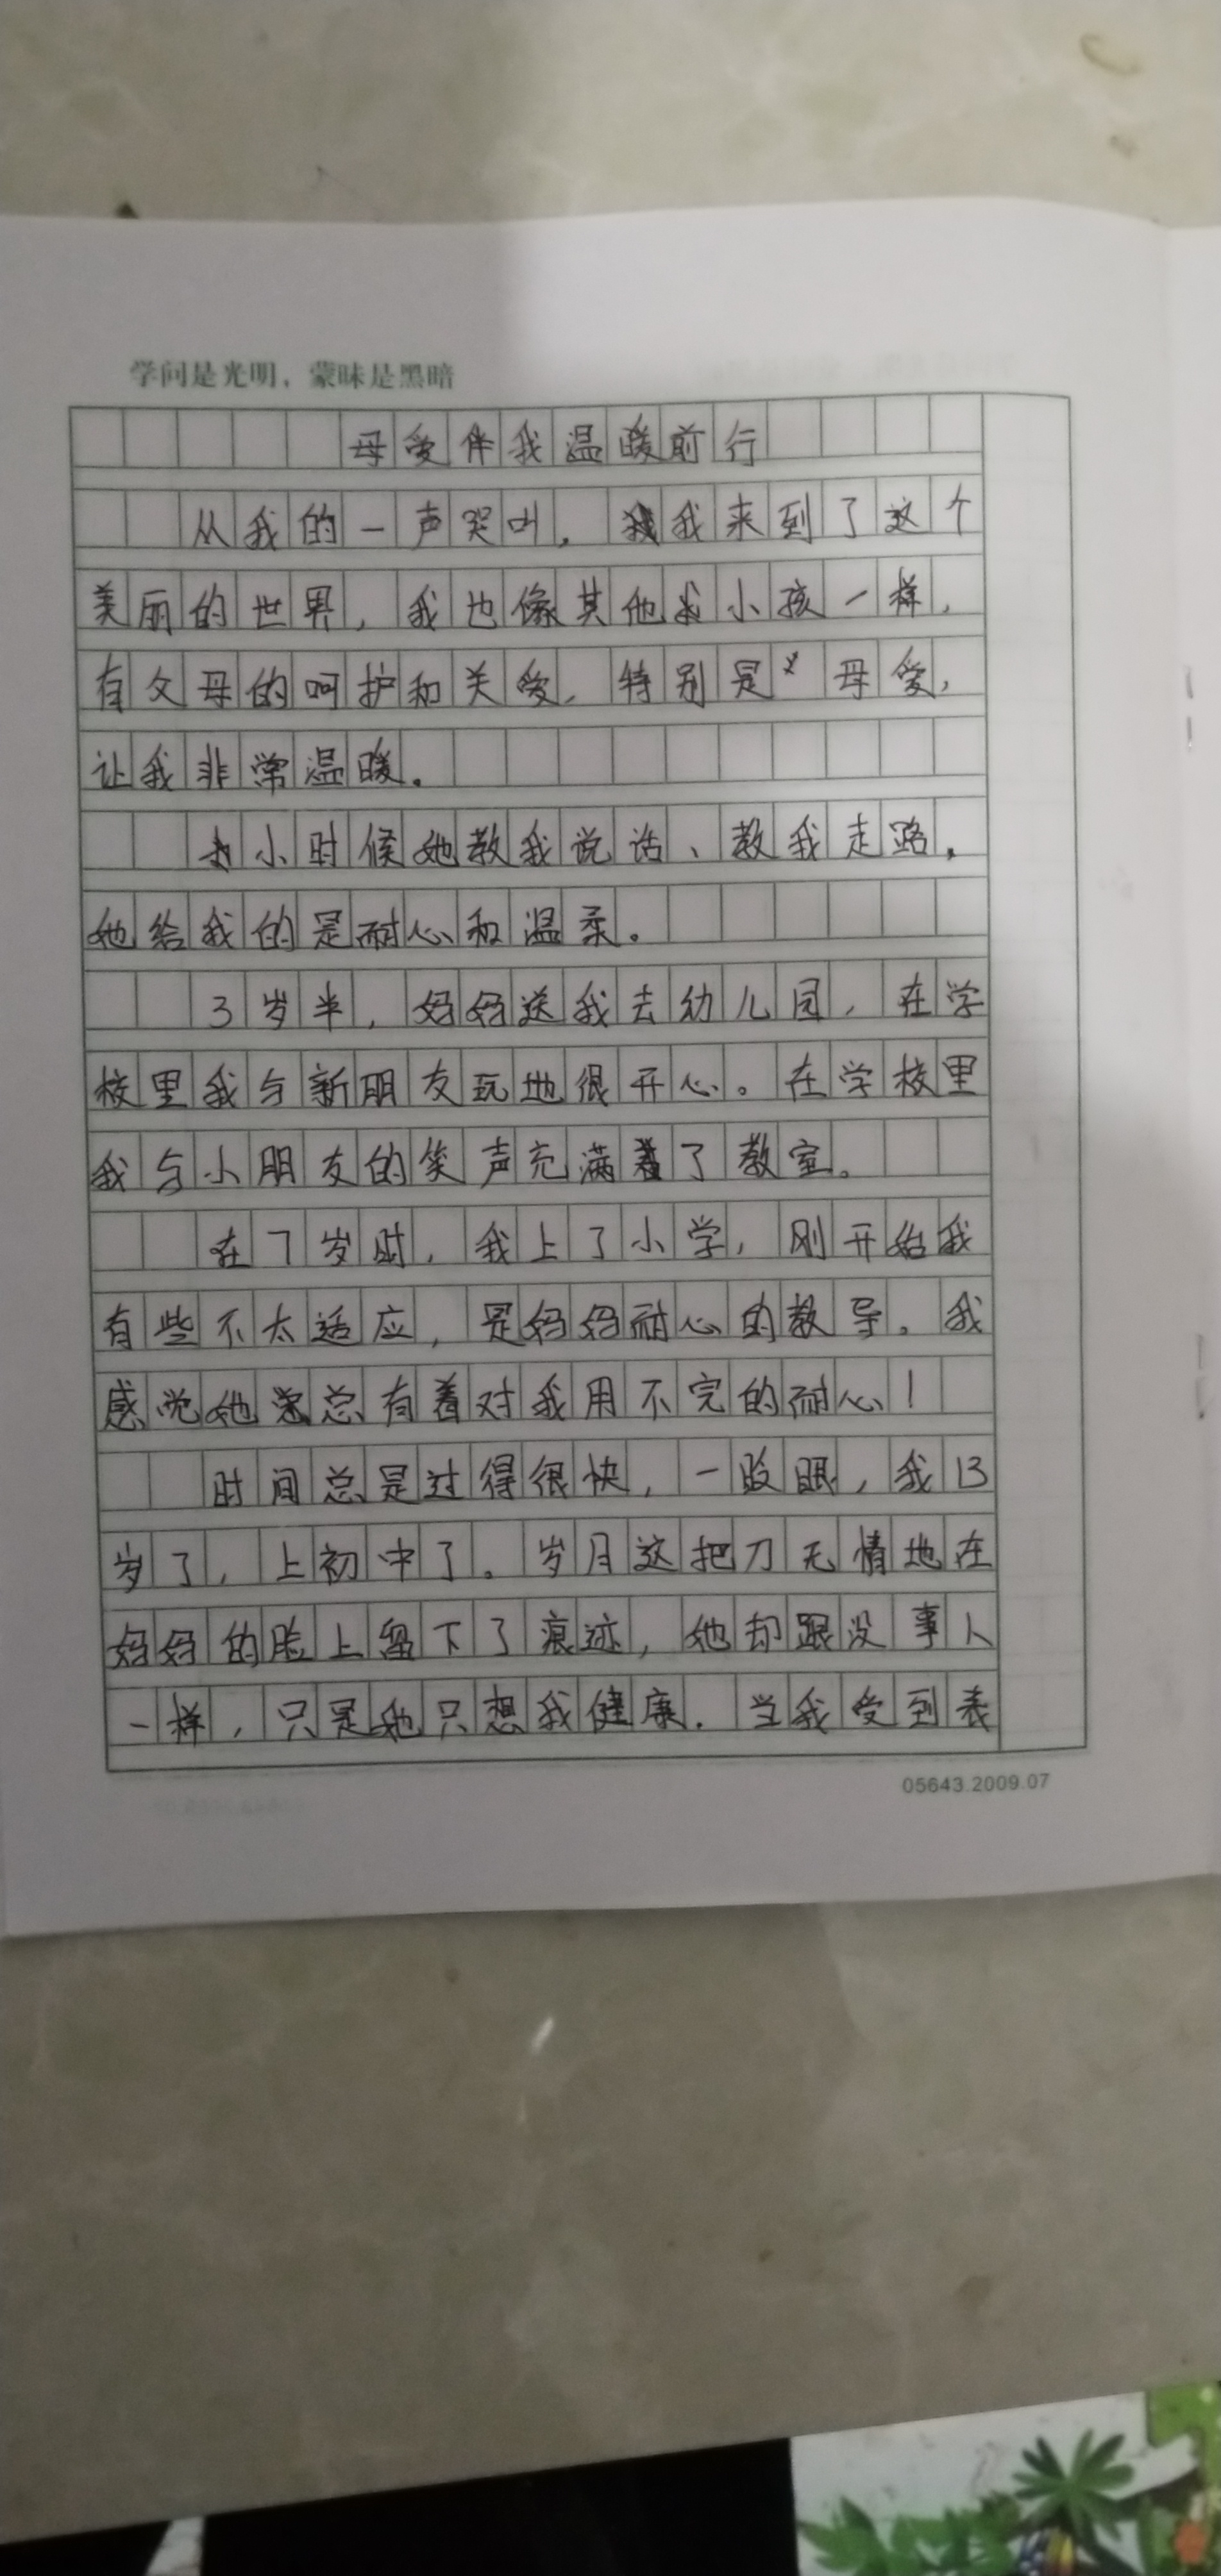 学问是光明，蒙昧是黑暗
母爱伴我温暖前行
从我的一声哭叫，我来到了这个
美丽的世界，我也像其他小孩一样，
有父母的呵护和关爱，特别是母爱，
让我非常温暖。
小时候她教我说话、教我走路，
她给我的是耐心和温柔。
3岁半，妈妈送我去幼儿园，在学
校里我与新朋友玩地很开心。在学校里
我与小朋友的笑声充满着了教室。
在7岁时，我上了小学，刚开始我
有些不太适应，是妈妈耐心的教导。我
感觉她总有着对我用不完的耐心！
时间总是过得很快，一眨眼，我13
岁了，上初中了。岁月这把刀无情地在
妈妈的脸上留下了痕迹，她却跟没事人
一样，只是她只想我健康。当我受到表
05643.2009.07